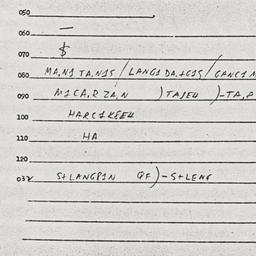 050
060 —
070 $
080 MA,N1 TA,N15 / LANG1 DA,+G15 / GANC1 M
090 M1CA,R ZA,N ) TAJEU )-TA,P
100 HARC1KEEU
110 HA
120
03 S+LANGP1N QF)-S+LENG